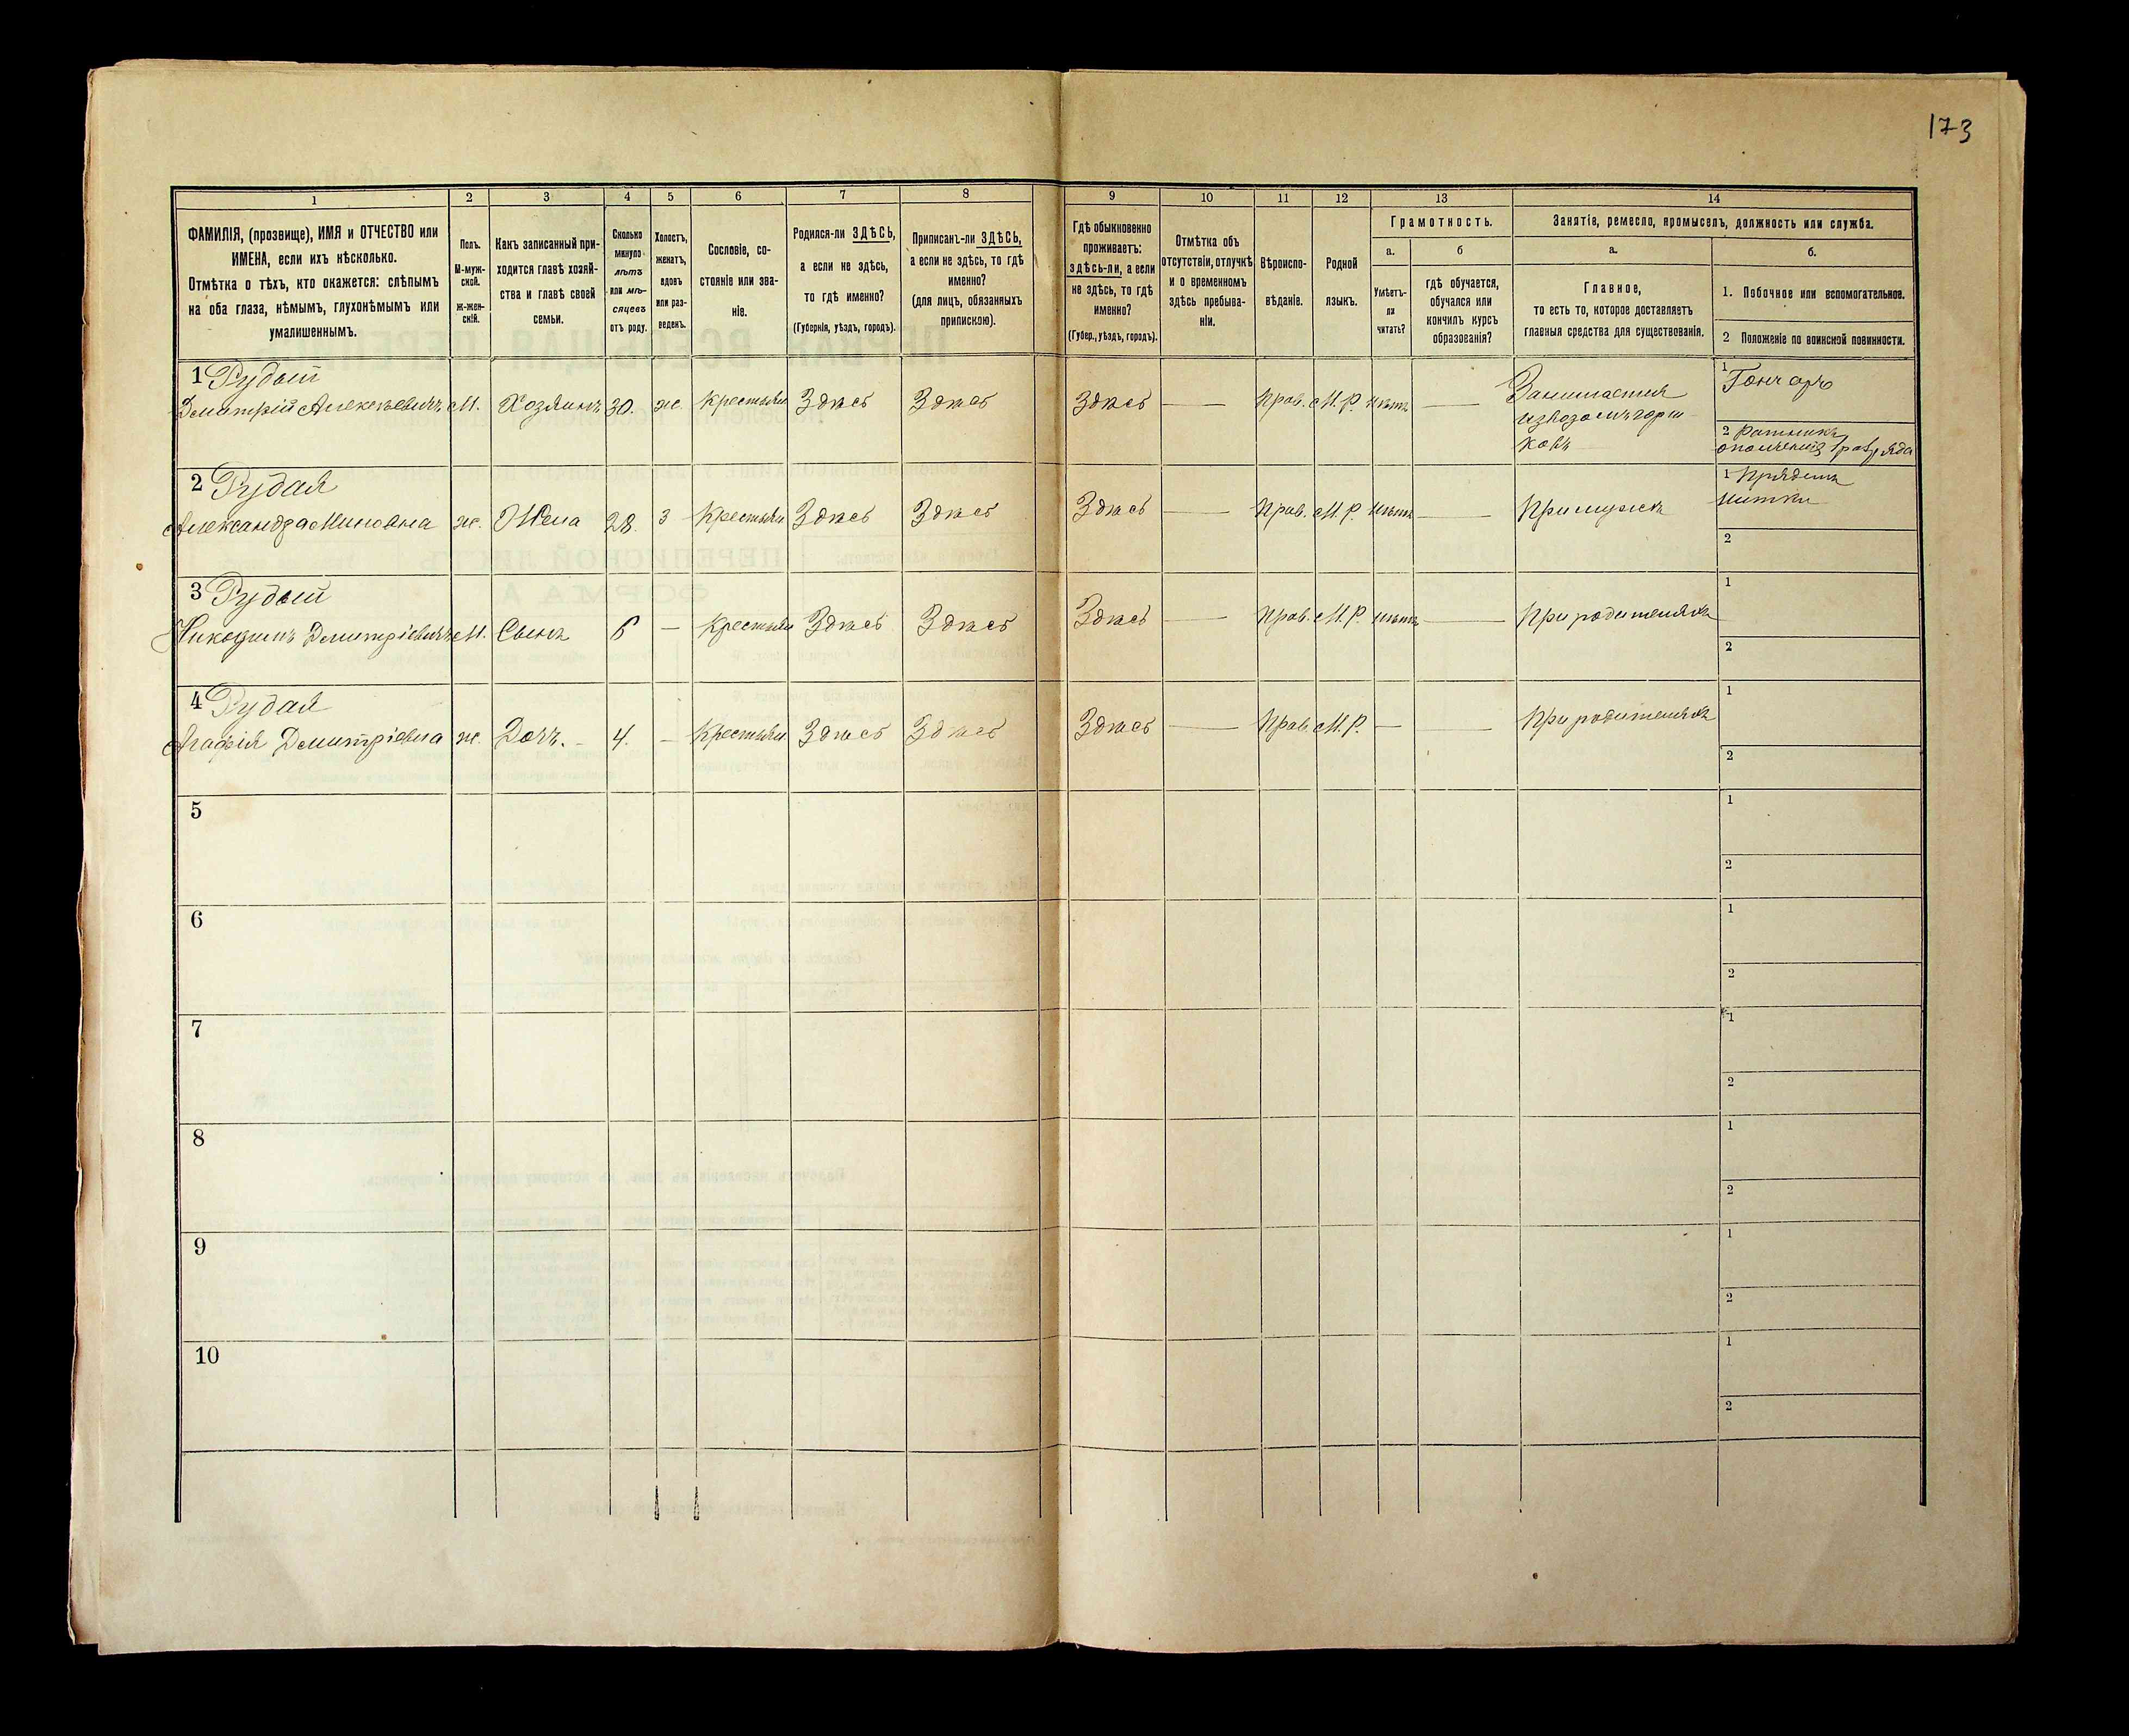 173
1 2 3 4 5 6 7 8 9 10 11 12 13 14
ФАМИЛІЯ, (прозвище), ИМЯ и ОТЧЕСТВО или
ИМЕНА, если ихъ нѣсколько.
Отмѣтка о тѣхъ, кто окажется: слѣпымъ
на оба глаза, нѣмымъ, глухонѣмымъ или
умалишеннымъ.
Полъ.
М-муж-
ской.
ж-жен-
скій.
Какъ записанный при-
ходится главѣ хозяй-
ства и главѣ своей
семьи.
Сколько
минуло
лѣтъ
или мѣ-
сяцевъ
отъ роду.
Холостъ,
женатъ,
вдовъ
или раз-
веденъ.
Сословіе, со-
стояніе или зва-
ніе.
Родился-ли ЗДѢСЬ,
а если не здѣсь,
то гдѣ именно?
(Губернія, уѣздъ, городъ).
Приписанъ-ли ЗДѢСЬ,
а если не здѣсь, то гдѣ
именно?
(для лицъ, обязанныхъ
припискою).
Гдѣ обыкновенно
проживаетъ:
здѣсь-ли, а если
не здѣсь, то гдѣ
именно?
(Губер., уѣздъ, городъ).
Отмѣтка объ
отсутствіи, отлучкѣ
и о временномъ
здѣсь пребыва-
ніи.
Вѣроиспо-
вѣданіе.
Родной
языкъ.
Грамотность.
а.
Умѣетъ-
ли
читать?
б
гдѣ обучается,
обучался или
кончилъ курсъ
образованія?
Занятіе, ремесло, промыселъ, должность или служба.
а.
Главное,
то есть то, которое доставляетъ
главныя средства для существованія.
б.
1. Побочное или вспомогательное.
2 Положеніе по воинской повинности.
1 Рудый
Дмитрій Алексѣевичъ М. Хозяинъ 30. ж. Крестьян Здѣсь Здѣсь Здѣсь — Прав. М.Р. нѣтъ —
Занимается
извозомъ горш
ковъ
1 Гончаръ
2 Ратникъ
ополченія 1 разряда
2 Рудая
Александра Миновна ж. Жена 28. З Крестьян Здѣсь Здѣсь Здѣсь — Прав. М.Р. нѣтъ — При мужѣ
1 Прядетъ
нитки
2
3 Рудый
Никодимъ Дмитріевичъ М. Сынъ 6 — Крестьян Здѣсь Здѣсь Здѣсь — Прав. М.Р. нѣтъ — При родителяхъ
1
2
4 Рудая
Агафія Дмитріевна ж. Дочь. 4. — Крестьян Здѣсь Здѣсь Здѣсь — Прав. М.Р. — — При родителяхъ
1
2
5
1
2
6
1
2
7
1
2
8
1
2
9
1
2
10
1
2